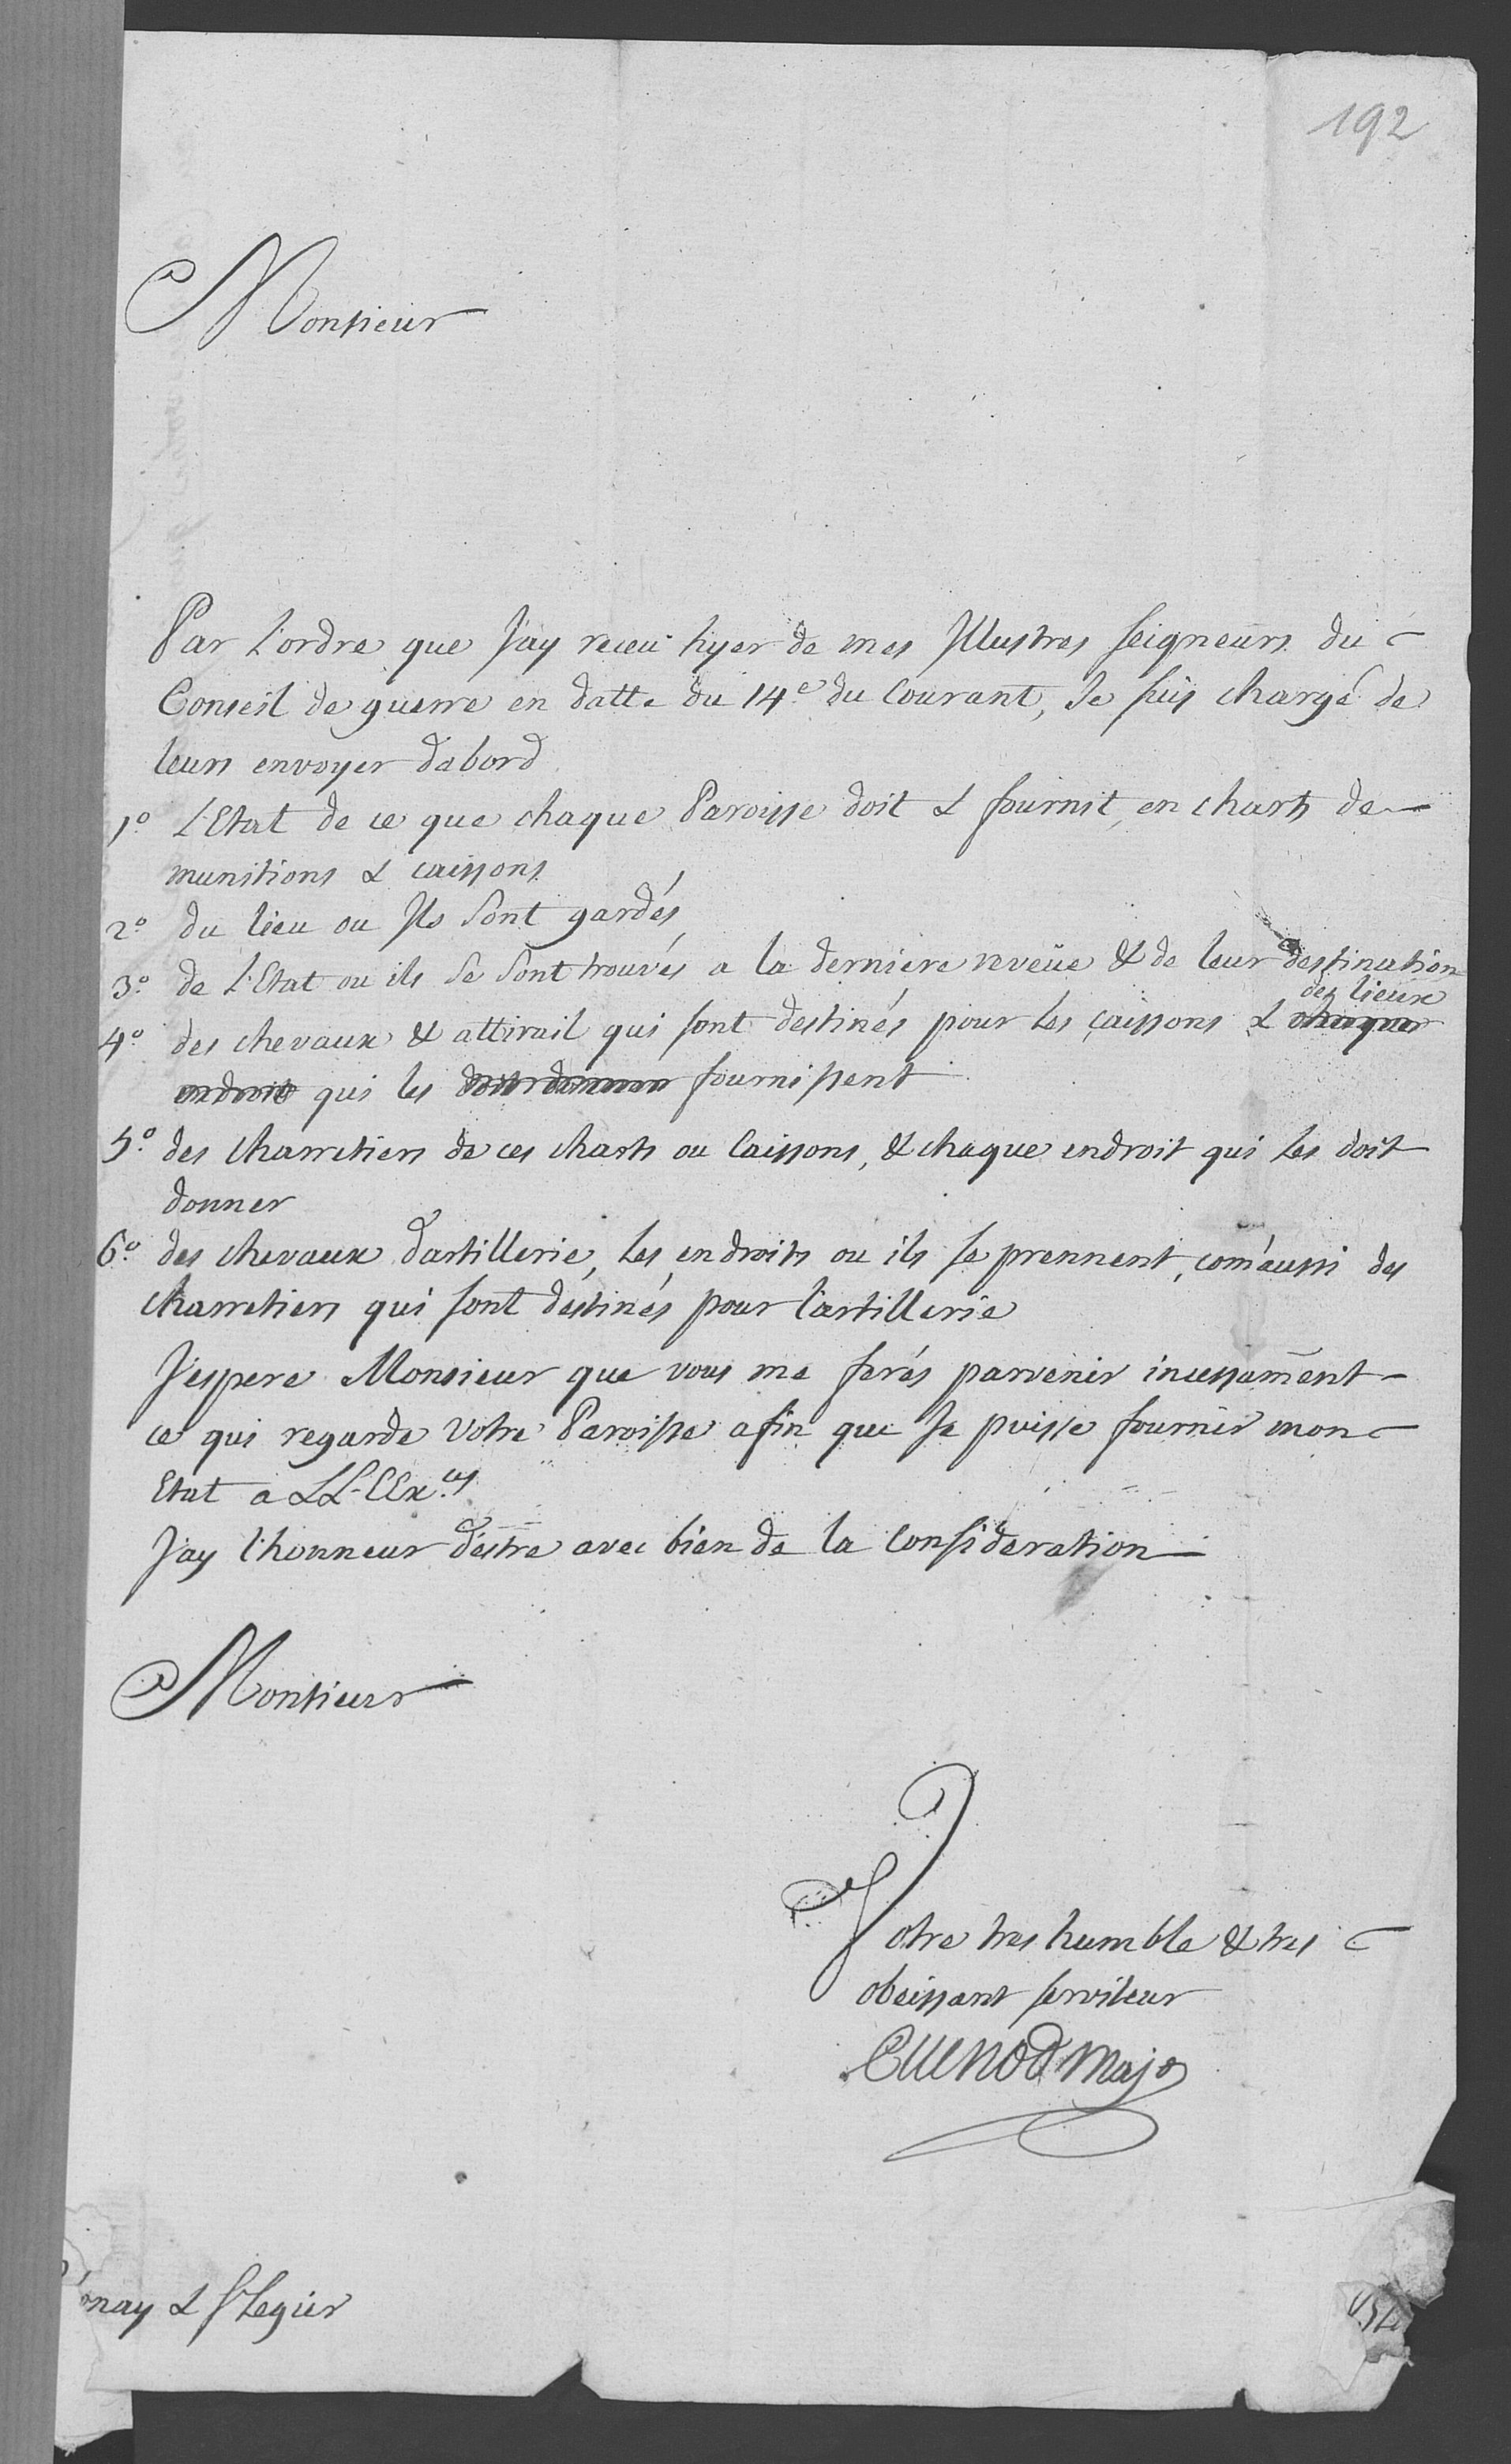 192
Monsieur
Par L'ordre que J'ay receu hyer de mes Jllustres Seigneurs du
Conseil de guerre en datte du 14.e du Courant, Je suis chargé de
leurs envoyer dabord
1.o L'Etat de ce que chaque Paroisse doit & fournit, en charts de
munitions & caissons
2.o du lieu ou Jls sont gardés
3.o de L'Etat ou ils se sont trouvés a la derniere reveüe & de leur destination
des lieux
4.o des chevaux & attirail qui sont destinés pour les caissons & chaque
endroit qui les doit donner fournissent
5.o des charretiers de ces charts ou Caissons, & chaque endroit qui les doit
donner
6.o des chevaux d'artillerie, les endroits ou ils se prennent, com'aussi des
charretiers qui sont déstinés pour l'artillerie
J'espere Monsieur que vous me ferés parvenir incessam̄ent
ce qui regarde Votre Paroisse afin que Je puisse fournir mon
Etat a LL-EEx.ces
J'ay l'honneur d'estre avec bien de la Consideration
Monsieur
Votre tres humble & tres
obeissant serviteur
Cuenod Majo
nay & St Legier